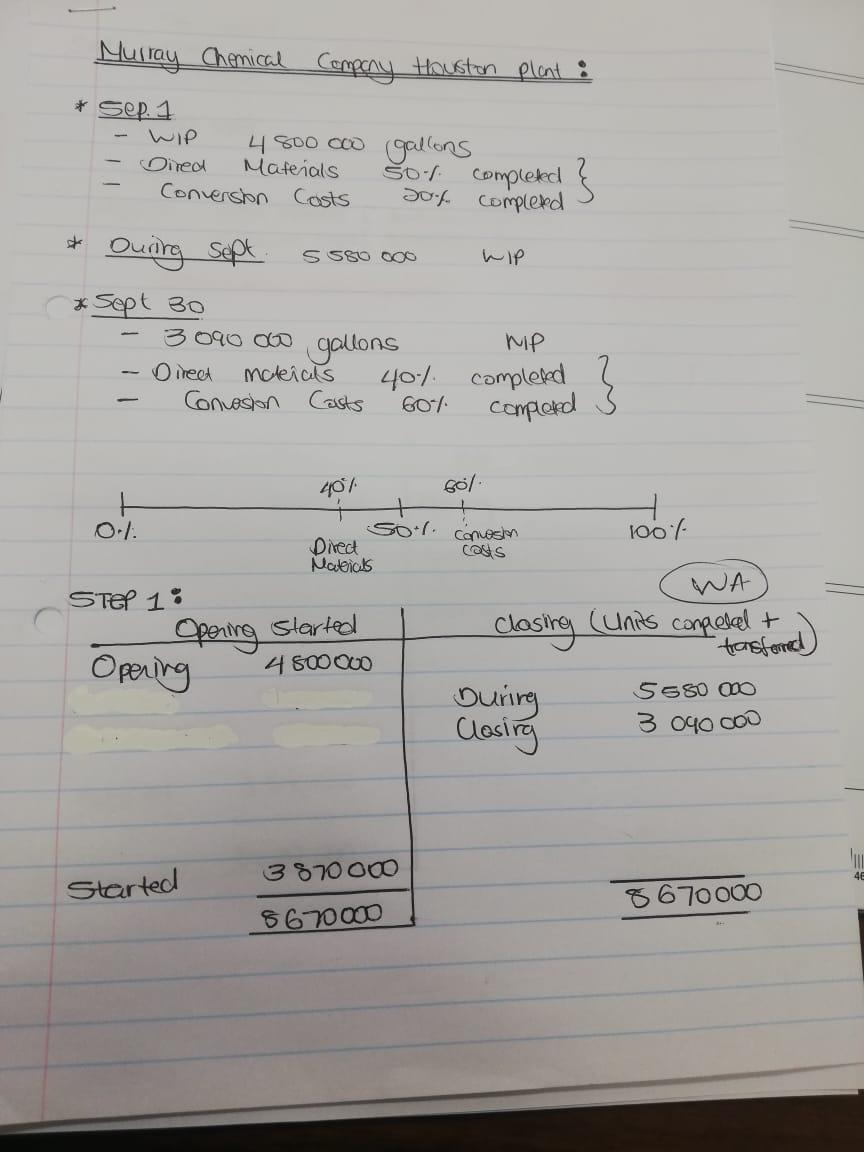 Murray Chemical Company Houston plant :
* Sep. 1
- WIP 4 800 000 gallons
- Direct Materials 50% completed }
- Conversion Costs 20% completed
* During Sept. 5 580 000 WIP
* Sept 30
- 3 090 000 gallons WIP
- Direct materials 40% completed }
- Convesion Costs 60% completed
40% 60%
0% 50% 100%
Direct Materials
Convesion costs
WA
STEP 1 :
Opening Started
Closing (Units completed + transferred)
Opening 4 800 000
During 5 580 000
Closing 3 090 000
Started 3 870 000
8 670 000
8 670 000
46